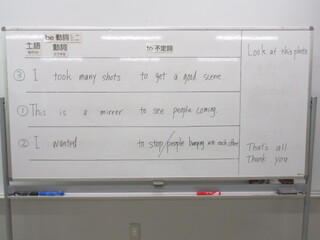 be動詞
主語 動詞 to 不定詞 Look at this photo
③ I took many shots to get a good scene.
① This is a mirrer to see people coming.
② I wanted to stop/people bumping with each other
That's all
Thank you